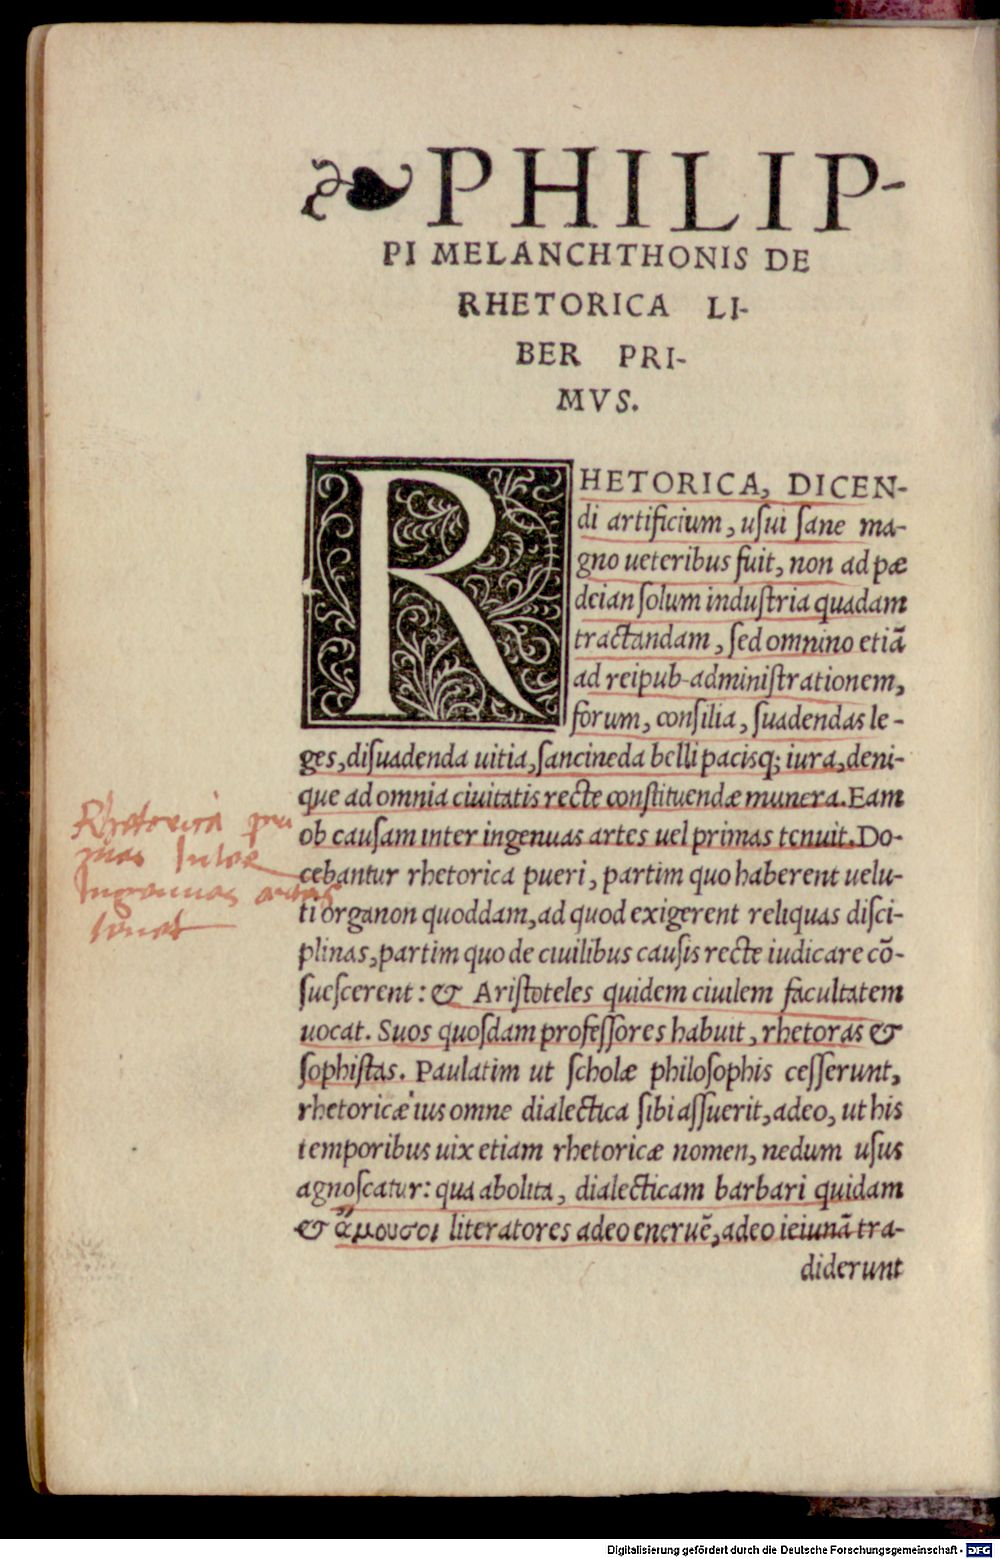 PHILIP-
PI MELANCHTHONIS DE
RHETORICA LI-
BER PRI-
MVS.
RHETORICA, DICEN-
di artificium, usui sane ma-
gno ueteribus fuit, non ad pæ
deian solum industria quadam
tractandam, sed omnino etiã
ad reipub-administrationem,
forum, consilia, suadendas le-
ges, disuadenda uitia, sancineda belli pacisq; iura, deni-
que ad omnia ciuitatis recte constituendæ munera. Eam
ob causam inter ingenuas artes uel primas tenuit. Do-
cebantur rhetorica pueri, partim quo haberent uelu-
ti organon quoddam, ad quod exigerent reliquas disci-
plinas, partim quo de ciuilibus causis recte iudicare cõ-
suescerent: & Aristoteles quidem ciuilem facultatem
uocat. Suos quosdam professores habuit, rhetoras &
sophistas. Paulatim ut scholæ philosophis cesserunt,
rhetoricæ ius omne dialectica sibi assuerit, adeo, ut his
temporibus uix etiam rhetoricæ nomen, nedum usus
agnoscatur: qua abolita, dialecticam barbari quidam
& ἄμουσοι literatores adeo eneruẽ, adeo ieiunã tra-
diderunt
Rhetorica pri
mas Inter
Ingenuas artes
tenet
Digitalisierung gefördert durch die Deutsche Forschungsgemeinschaft - DFG